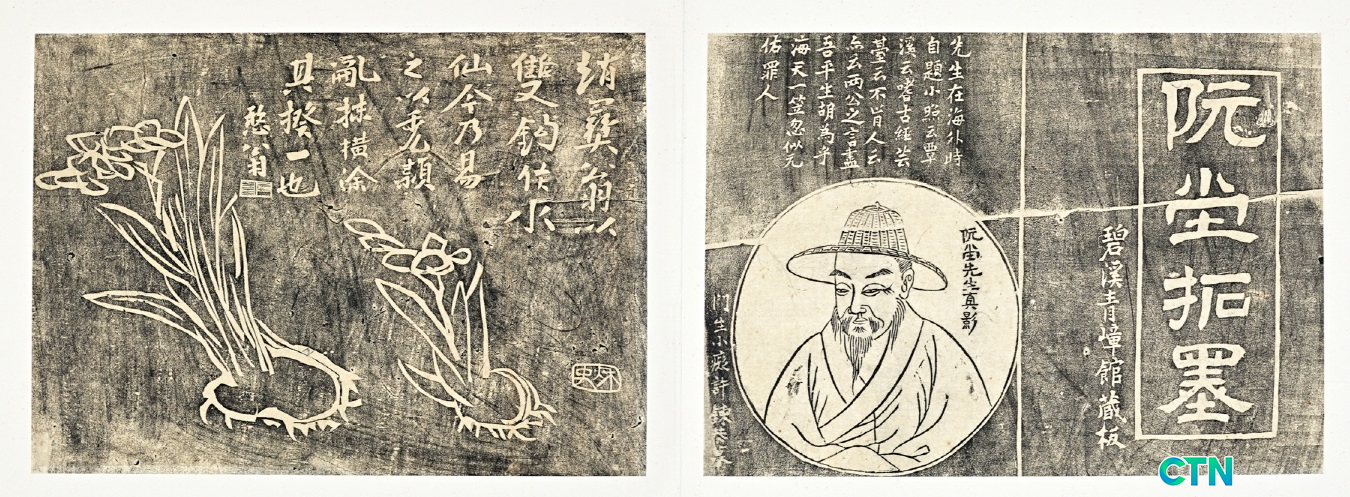 阮坣拓墨
碧溪青嶂館藏板
先生在海外時
自題小照云覃
溪云嗜古經芸
臺云不肯人云
亦云兩公之言盡
吾平生胡為乎
海天一笠忽似元
佑罪人
阮坣先生真影
門生小癡許
趙彝翁以
雙鉤作水
仙今乃易
之以禿穎
亂抹橫塗
其揆一也
憨翁
CTN